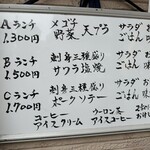 Aランチ メゴチ サラダ
1.300円 野菜 天ぷら ごはん
Bランチ 刺身三種盛り サラダ
1.500円 サワラ塩焼 ごはん
Cランチ 刺身三種盛り サラダ
1.700円 ポークソテー ごはん
コーヒー ウーロン茶
アイスクリーム アイスコーヒー